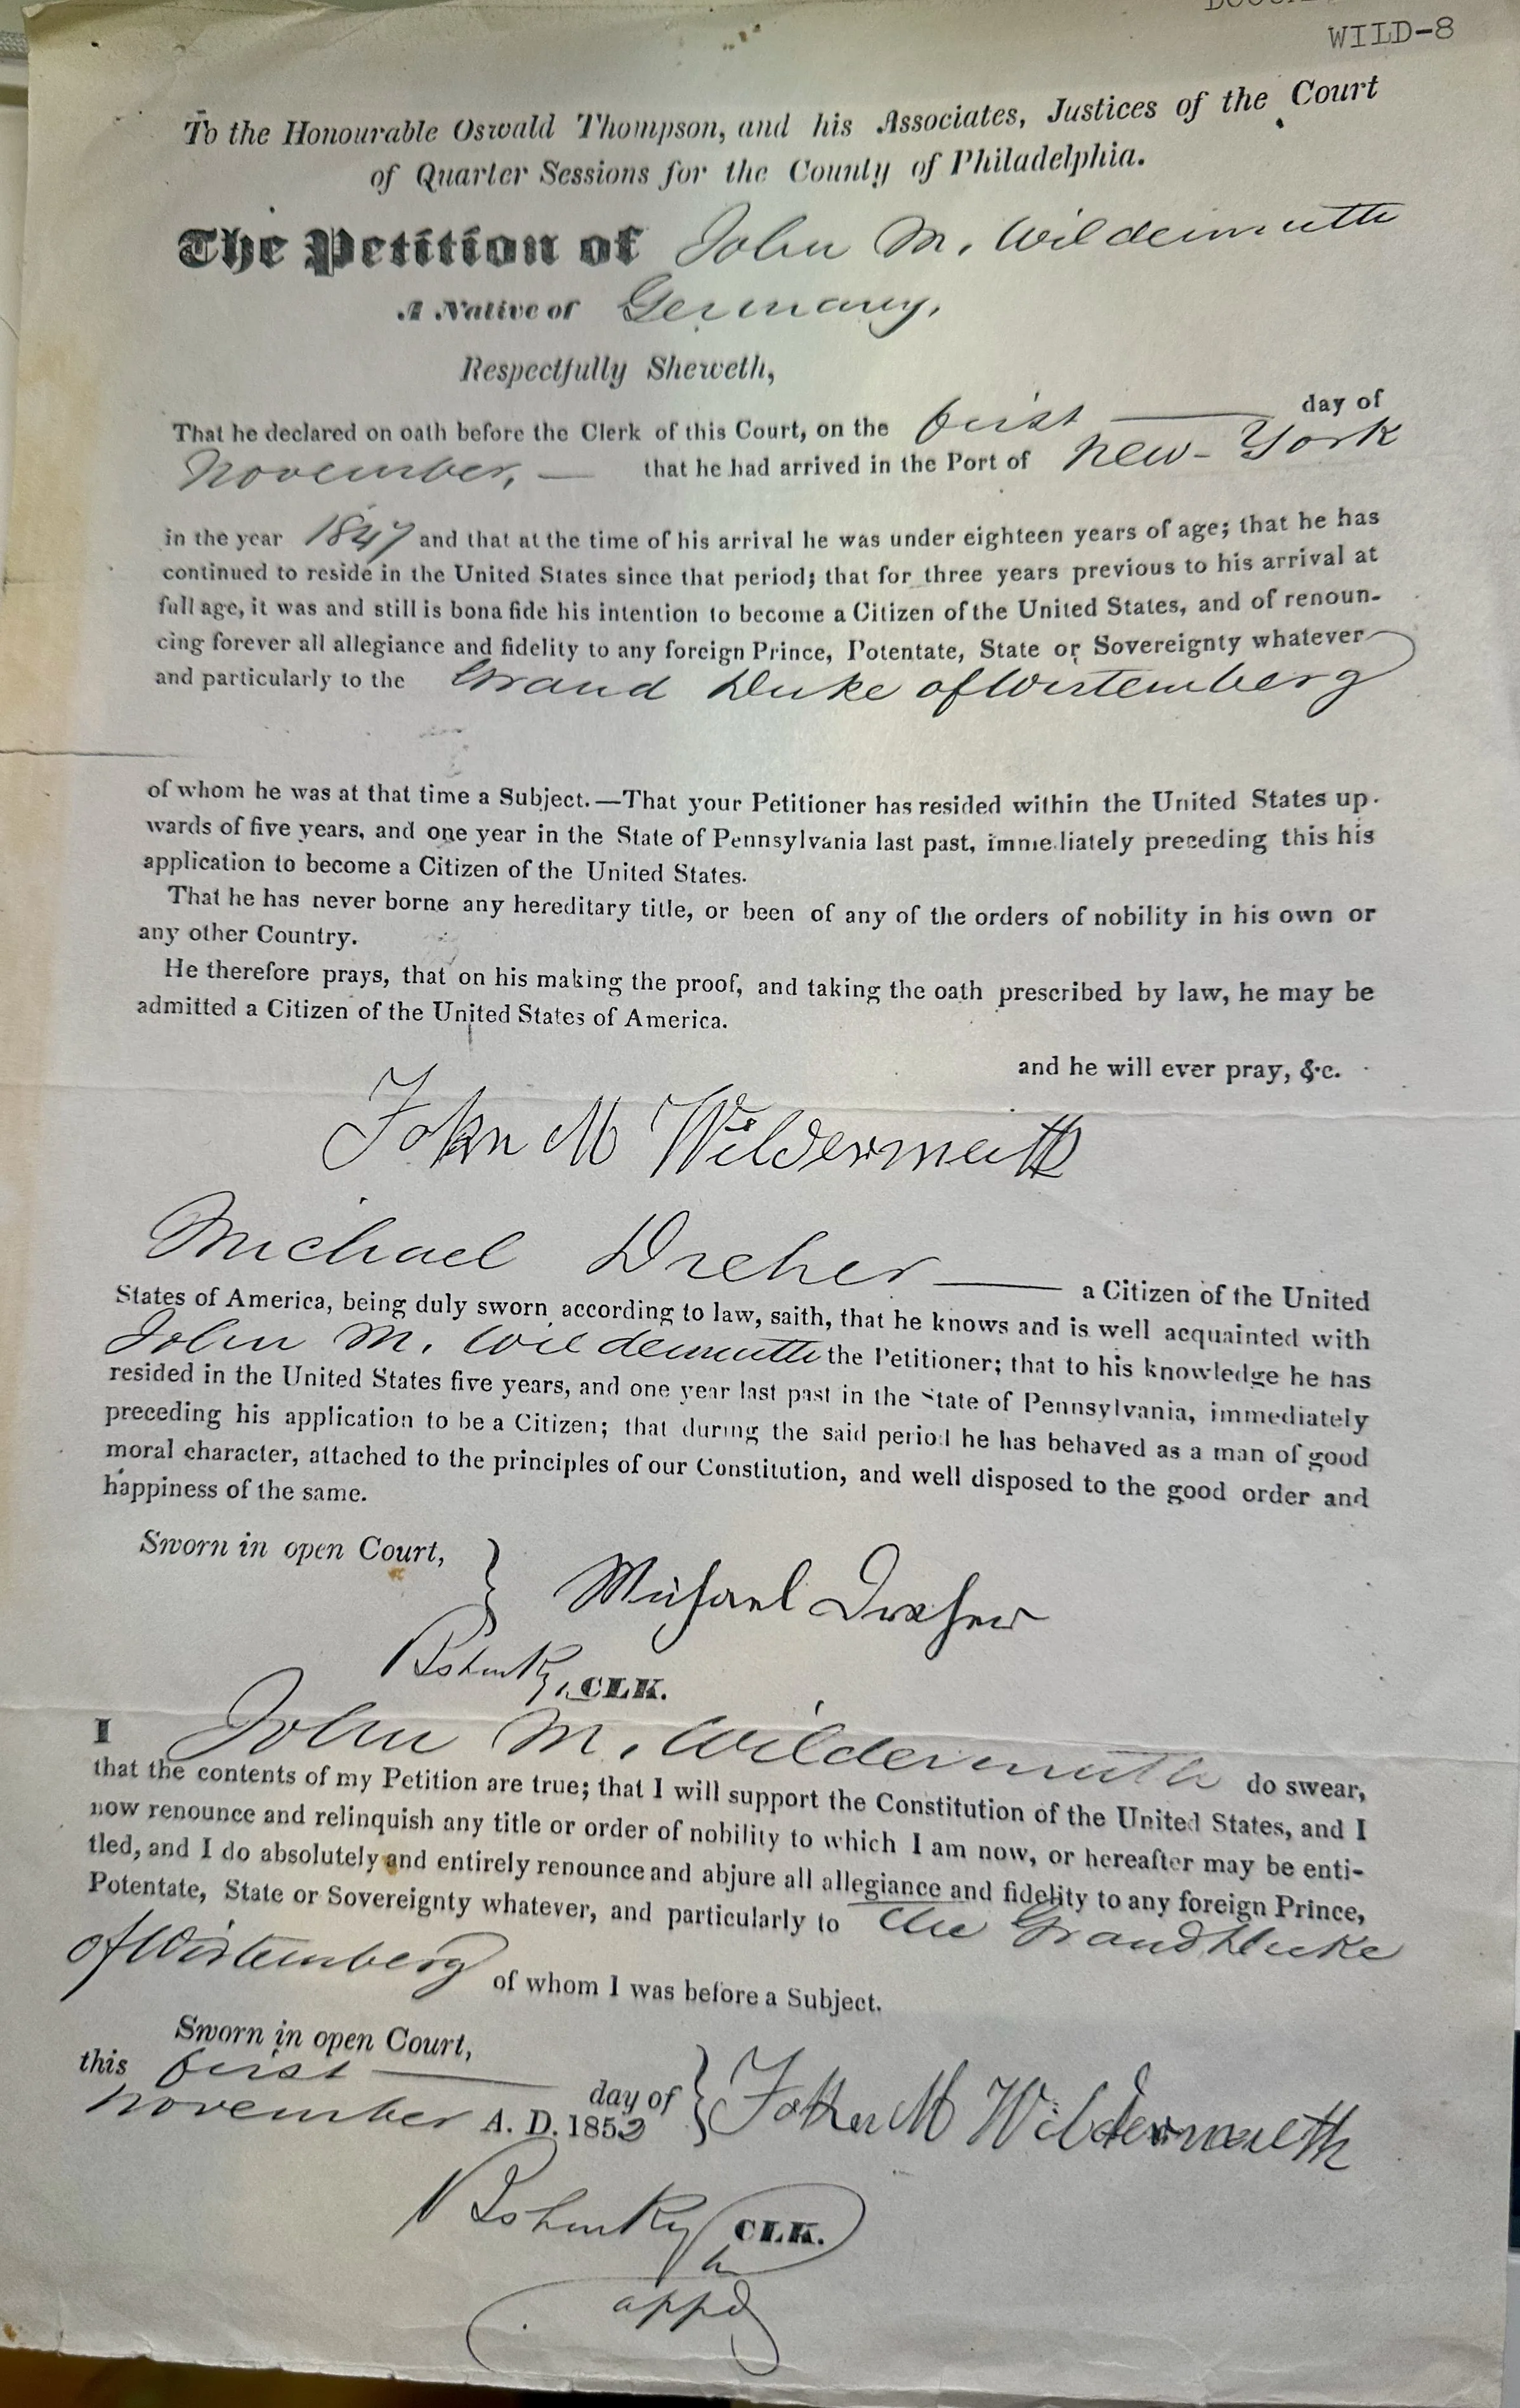 WILD-8
To the Honourable Oswald Thompson, and his Associates, Justices of the Court
of Quarter Sessions for the County of Philadelphia.
The Petition of John M. Wildermuth
A Native of Germany,
Respectfully Sheweth,
That he declared on oath before the Clerk of this Court, on the first day of
November, — that he had arrived in the Port of New-York
in the year 1847 and that at the time of his arrival he was under eighteen years of age; that he has
continued to reside in the United States since that period; that for three years previous to his arrival at
full age, it was and still is bona fide his intention to become a Citizen of the United States, and of renoun-
cing forever all allegiance and fidelity to any foreign Prince, Potentate, State or Sovereignty whatever
and particularly to the Grand Duke of Wirtemberg
of whom he was at that time a Subject.—That your Petitioner has resided within the United States up-
wards of five years, and one year in the State of Pennsylvania last past, immediately preceding this his
application to become a Citizen of the United States.
That he has never borne any hereditary title, or been of any of the orders of nobility in his own or
any other Country.
He therefore prays, that on his making the proof, and taking the oath prescribed by law, he may be
admitted a Citizen of the United States of America.
and he will ever pray, &c.
John M Wildermuth
Michael Dreher — a Citizen of the United
States of America, being duly sworn according to law, saith, that he knows and is well acquainted with
John M. Wildermuth the Petitioner; that to his knowledge he has
resided in the United States five years, and one year last past in the State of Pennsylvania, immediately
preceding his application to be a Citizen; that during the said period he has behaved as a man of good
moral character, attached to the principles of our Constitution, and well disposed to the good order and
happiness of the same.
Sworn in open Court,
Michael Dreher
CLK.
I John M. Wildermuth do swear,
that the contents of my Petition are true; that I will support the Constitution of the United States, and I
now renounce and relinquish any title or order of nobility to which I am now, or hereafter may be enti-
tled, and I do absolutely and entirely renounce and abjure all allegiance and fidelity to any foreign Prince,
Potentate, State or Sovereignty whatever, and particularly to the Grand Duke
of Wirtemberg of whom I was before a Subject.
Sworn in open Court,
this first — day of
November A. D. 1852
John M Wildermuth
CLK.
appd